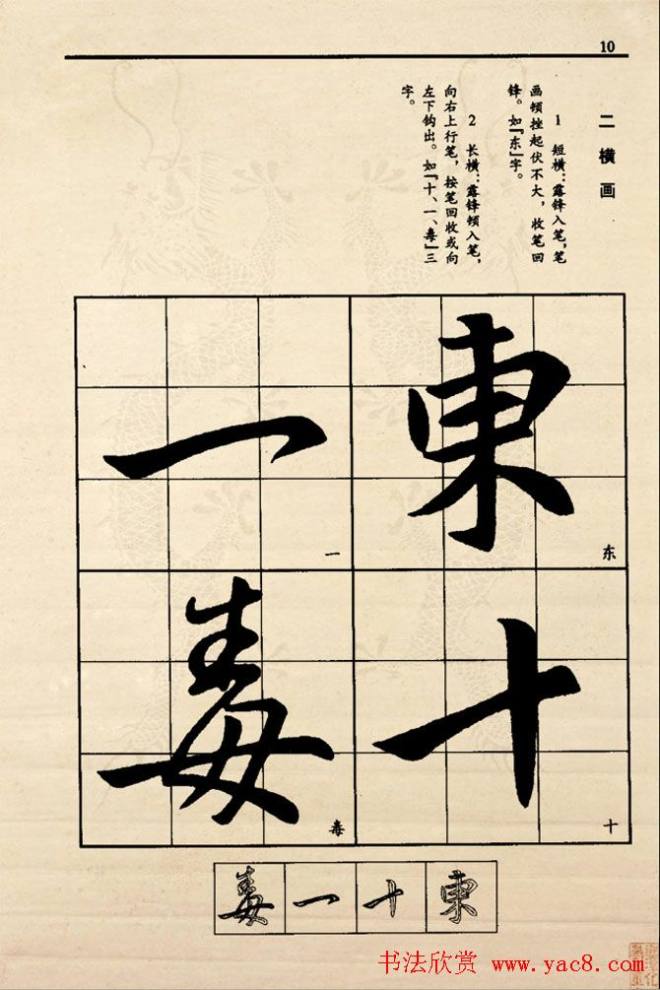 10
二 横画
1 短横：露锋入笔，笔
画顿挫起伏不大，收笔回
锋。如『东』字。
2 长横：露锋顿入笔，
向右上行笔，按笔回收或向
左下钩出。如『十、一、毒』三
字。
東
东
十
十
一
一
毒
毒
東
十
一
毒
书法欣赏 www.yac8.com